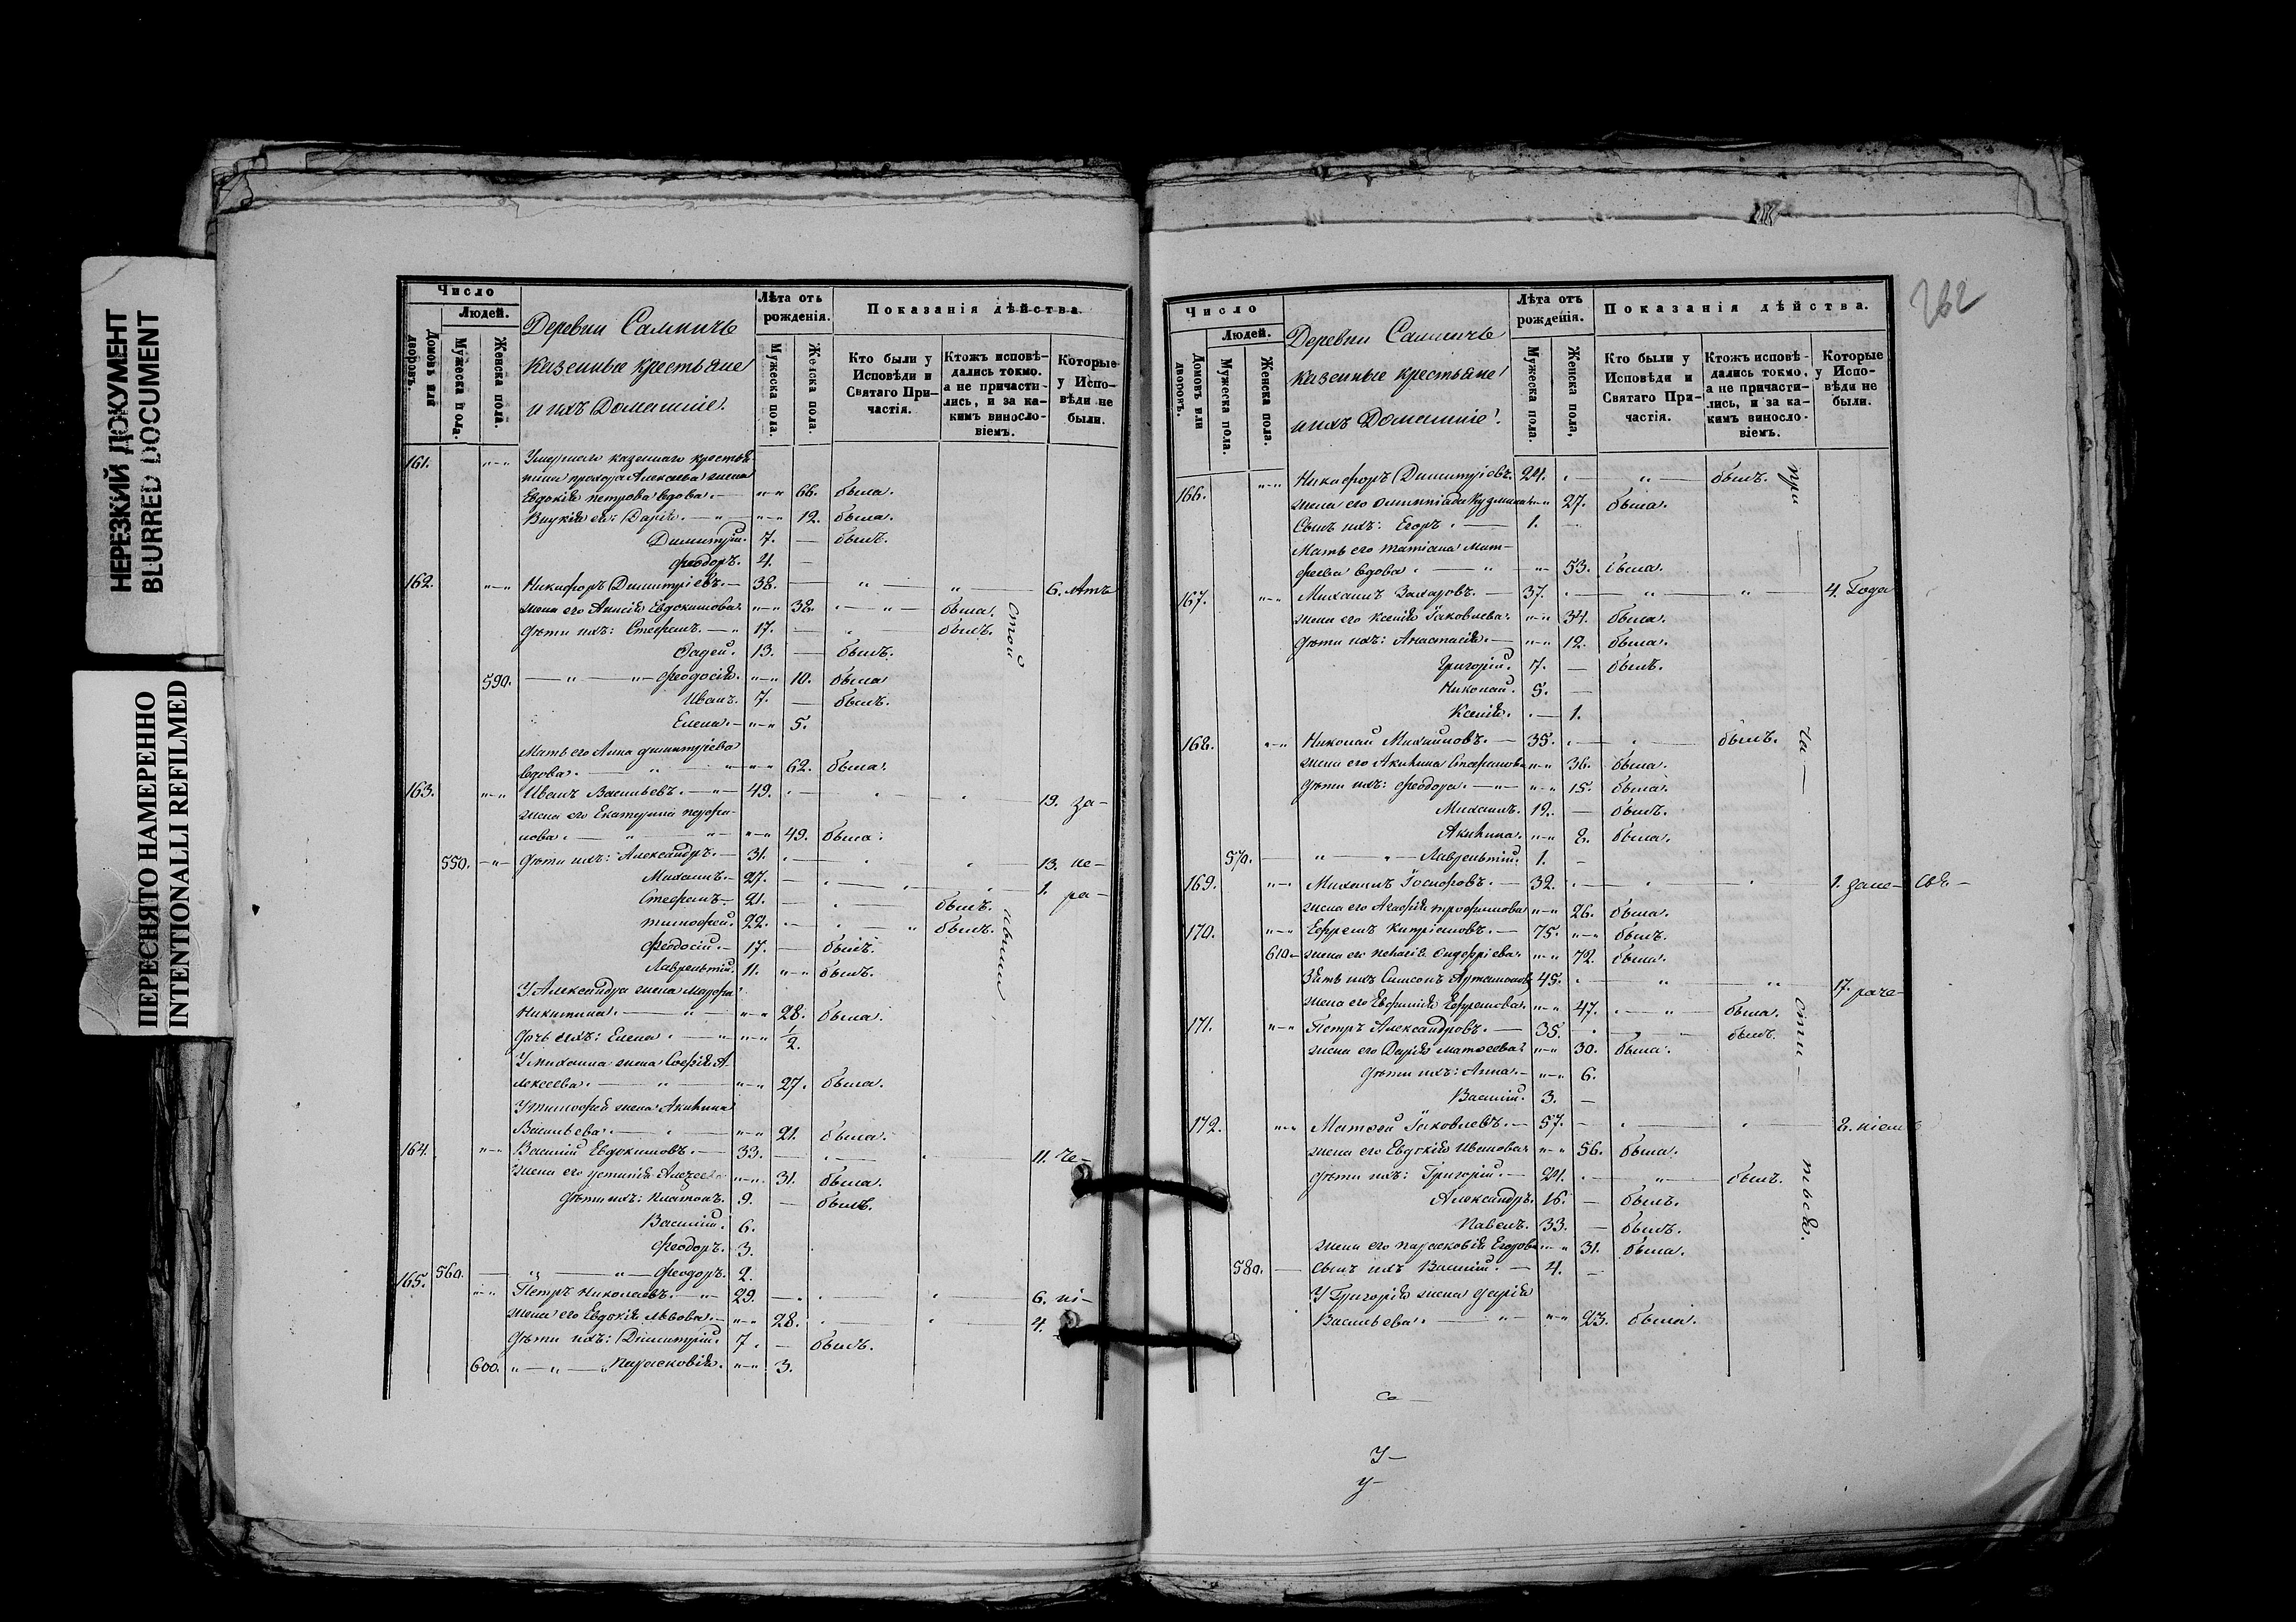 НЕРЕЗКИЙ ДОКУМЕНТ
BLURRED DOCUMENT
ПЕРЕСНЯТО НАМЕРЕННО
INTENTIONALLI REFILMED
Число
Людей.
Домовъ или дворовъ.
Мужеска пола.
Женска пола.
Деревни
казенные крестьяне
и ихъ Домашніе.
Лѣта отъ рожденія.
Мужеска пола.
Женска пола.
Показанія дѣйства.
Кто были у Исповѣди и Святаго При-частія.
Ктожъ исповѣ-дались токмо, а не причасти-лись, и за ка-кимъ винослo-віемъ.
Которые у Испо-вѣди не были.
161. „-„ Умершаго казеннаго крестья-
нина прохора Алексѣева жена
Евдокія петрова вдова. — „-„ 66. была.
Внуки ея: Дарія. — „ — „-„ 12. была.
Димитрій. 7. — былъ.
Феодоръ. 4. —
162. „-„ Никифоръ Димитріевъ. — 38. — „ — „ — 6. лѣтъ
жена его Анисія Евдокимова. „-„ 38. — „ — была.
дѣти ихъ: Стефанъ. — „ 17. — былъ.
Фадей. 13. — былъ.
590. — „ — „ — Феодосія. „-„ 10. была
Иванъ. 7. — былъ.
Елена. — „-„ 5.
Мать его Анна димитріева
вдова. — „ — „ „-„ 62. была.
163. „-„ Иванъ Васильевъ. — „ — 49. — 19. за-
жена его Екатерина
нова. — „ — „-„ 49. была.
550. — „ — дѣти ихъ: Александръ. — 31. — 13. не-
Михаилъ. — 27. — 1. ра-
Стефанъ — 21. — былъ.
тимофей. 22. — „ былъ.
Феодосій. — 17. — былъ.
Лаврентій. 11. „-„ былъ.
У Александра жена Марфа
Никитина. — „ — „-„ 28. была.
дочь ихъ: Елена. — „ „-„ 1/2.
У михаила жена Софія А-
лексеева. — „ — „-„ 27. была.
У тимофея жена Акилина
Васильева. — „-„ 21. была.
164. „-„ Василій Евдокимовъ. — 33. — 11. че-
жена его устинія „-„ 31. была.
дѣти ихъ: платонъ. 9. — былъ.
Василій. 6.
Феодоръ. 3.
560. — „ — „ — Феодоръ. 2.
165. „-„ Петръ Николаевъ. — „ — 29. — 6. ні-
жена его Евдокія львова. — „-„ 28. — 4.
дѣти ихъ: Димитрій. 7. — былъ.
600. „ — „ — „ Парасковія. „-„ 3.
стой
262
Число
Людей.
Домовъ или дворовъ.
Мужеска пола.
Женска пола.
Деревни
казенные крестьяне
и ихъ Домашніе.
Лѣта отъ рожденія.
Мужеска пола.
Женска пола,
Показанія дѣйства.
Кто были у Исповѣди и Святаго При-частія.
Ктожъ исповѣ-дались токмо, а не причасти-лись, и за ка-кимъ винослo-віемъ.
Которые у Испо-вѣди не были.
166. „-„ Никифоръ Димитріевъ. 24. — „ — былъ.
жена его Олимпіада Кузмина „-„ 27. была.
Сынъ ихъ: Егоръ. — 1. —
Мать его татіана Мат-
феева вдова. — „ — „-„ 53. была.
167. „-„ Михаилъ Захаровъ. — 37. — „ — „ — 4. Года
жена его Ксенія Іаковлева. „-„ 34. была.
дѣти ихъ: Анастасія. — „-„ 12. была.
Григорій. 7. — былъ.
Николай. 5. —
Ксенія. — 1.
168. „-„ Николай Михайловъ. — 35. — былъ.
жена его Акилина Стефанова „-„ 36. была.
дѣти ихъ: Феодора. — „ — „-„ 15. была.
Михаилъ. 12. — былъ.
Акилина. „-„ 8. была.
570. — „ — „ — Лаврентій. 1. —
169. „-„ Михаилъ Іосифовъ. — 32. — 1. зане- свя-
жена его Агафія трофимова „-„ 26. была.
170. „-„ Ефремъ — 75. „-„ былъ.
610. — жена его „-„ 72. была.
Зять ихъ Симеонъ Артамоновъ 45. — „ — „ 17. раче-
жена его Евфимія Ефремова. „-„ 47. — „ — была.
171. „-„ Петръ Александровъ. — 35. — былъ.
жена его Дарія матѳеева „-„ 30. была.
дѣти ихъ: Анна. — „-„ 6.
Василій. 3. —
172. „-„ Матѳей Іаковлевъ. — 57. — 2. ніемъ
жена его Евдокія Иванова „-„ 56. была.
дѣти ихъ: Григорій. — 21. — „ — былъ.
Александръ. 16. — былъ.
Павелъ. 33. — былъ.
жена его парасковія Егорова „-„ 31. была.
580. — сынъ ихъ Василій. — 4. —
У Григорія жена дарія
Васильева. — „ — „-„ 23. была.
при
ча —
сти —
Со —
У —
у —